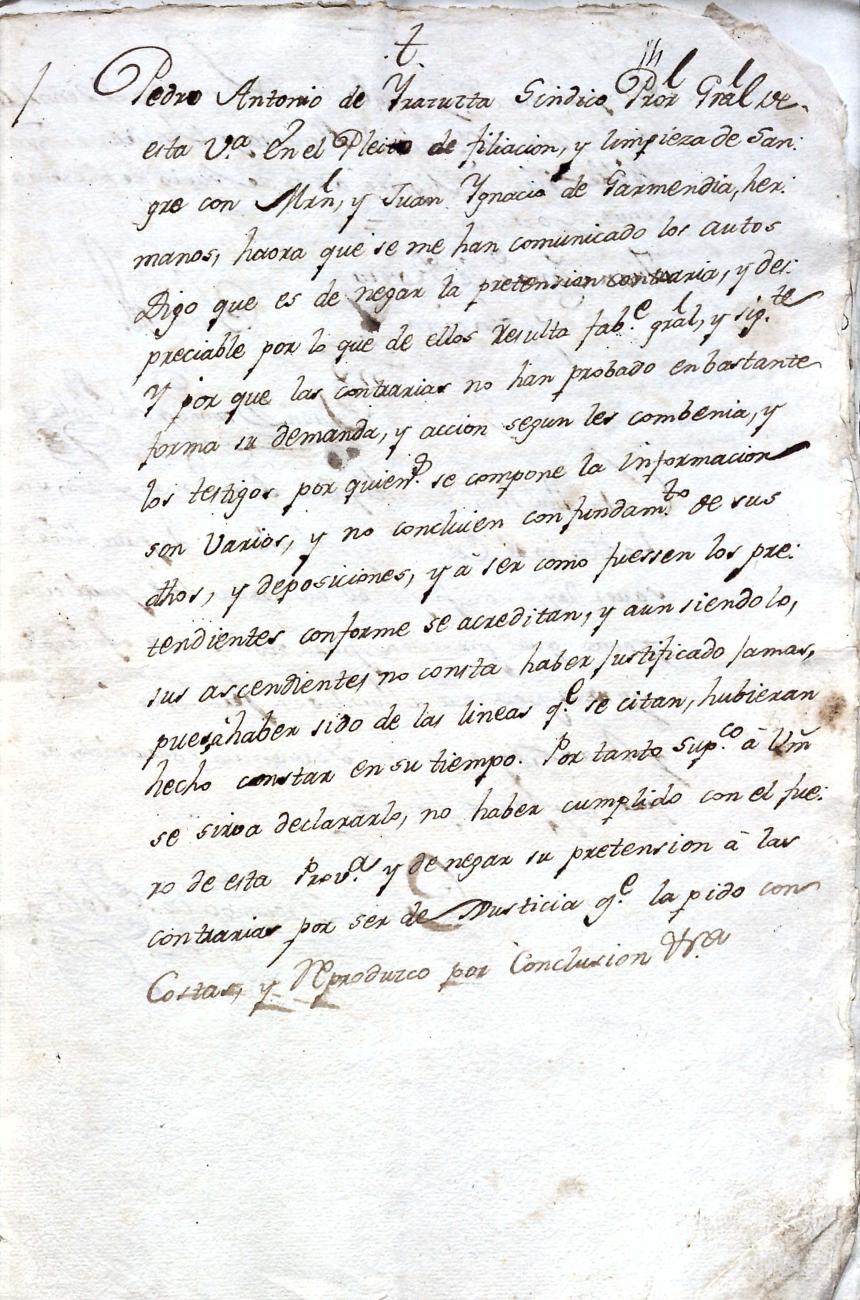 t
Pedro Antonio de Yrazuzta Sindico Pror Gral de
esta V.a En el Pleito de filiacion, y limpieza de San:
gre con Mrn, y Juan Ygnacio de Garmendia, her:
manos, haora que se me han comunicado los autos
Digo que es de negar la pretension contraria, y des:
preciable por lo que de ellos Resulta fab.e gral, y sig.te
Y por que las contrarias no han probado en bastante
forma su demanda, y accion segun les combenia, y
los testigos por quien.s se compone la Informacion
son Varios, y no concluien con fundam.to de sus
dhos, y deposiciones, y â ser como fuessen los pre:
tendientes conforme se acreditan, y aun siendolo,
sus ascendientes no consta haber Justificado Jamas,
pues â haber sido de las lineas q.e se citan, hubieran
hecho constar en su tiempo. Por tanto Sup.co â Vm
se sirva declararlo, no haber cumplido con el fue:
ro de esta Prov.a y denegar su pretension â las
contrarias por ser de Justicia q.e la pido con
Costas, y Reproduzco por Conclusion